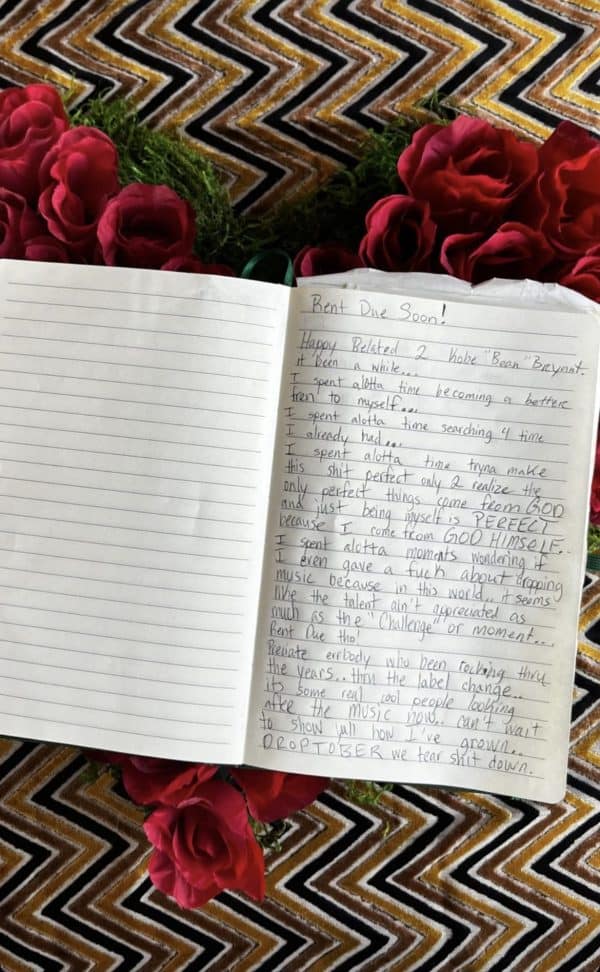 Rent Due Soon!
Happy Belated 2 Kobe "Bean" Bryant.
it been a while...
I spent alotta time becoming a better
fren' to myself...
I spent alotta time searching 4 time
I already had...
I spent alotta time tryna make
this shit perfect only 2 realize the
only perfect things come from GOD
and just being myself is PERFECT
because I come from GOD HIMSELF..
I spent alotta moments wondering if
I even gave a fuck about dropping
music because in this world.. it seems
like the talent ain't appreciated as
much as the "Challenge" or moment...
Rent Due tho!
Preciate errbody who been rocking thru
the years.. thru the label change..
its some real cool people looking
after the music now.. can't wait
to show yall how I've grown..
DROPTOBER we tear shit down.